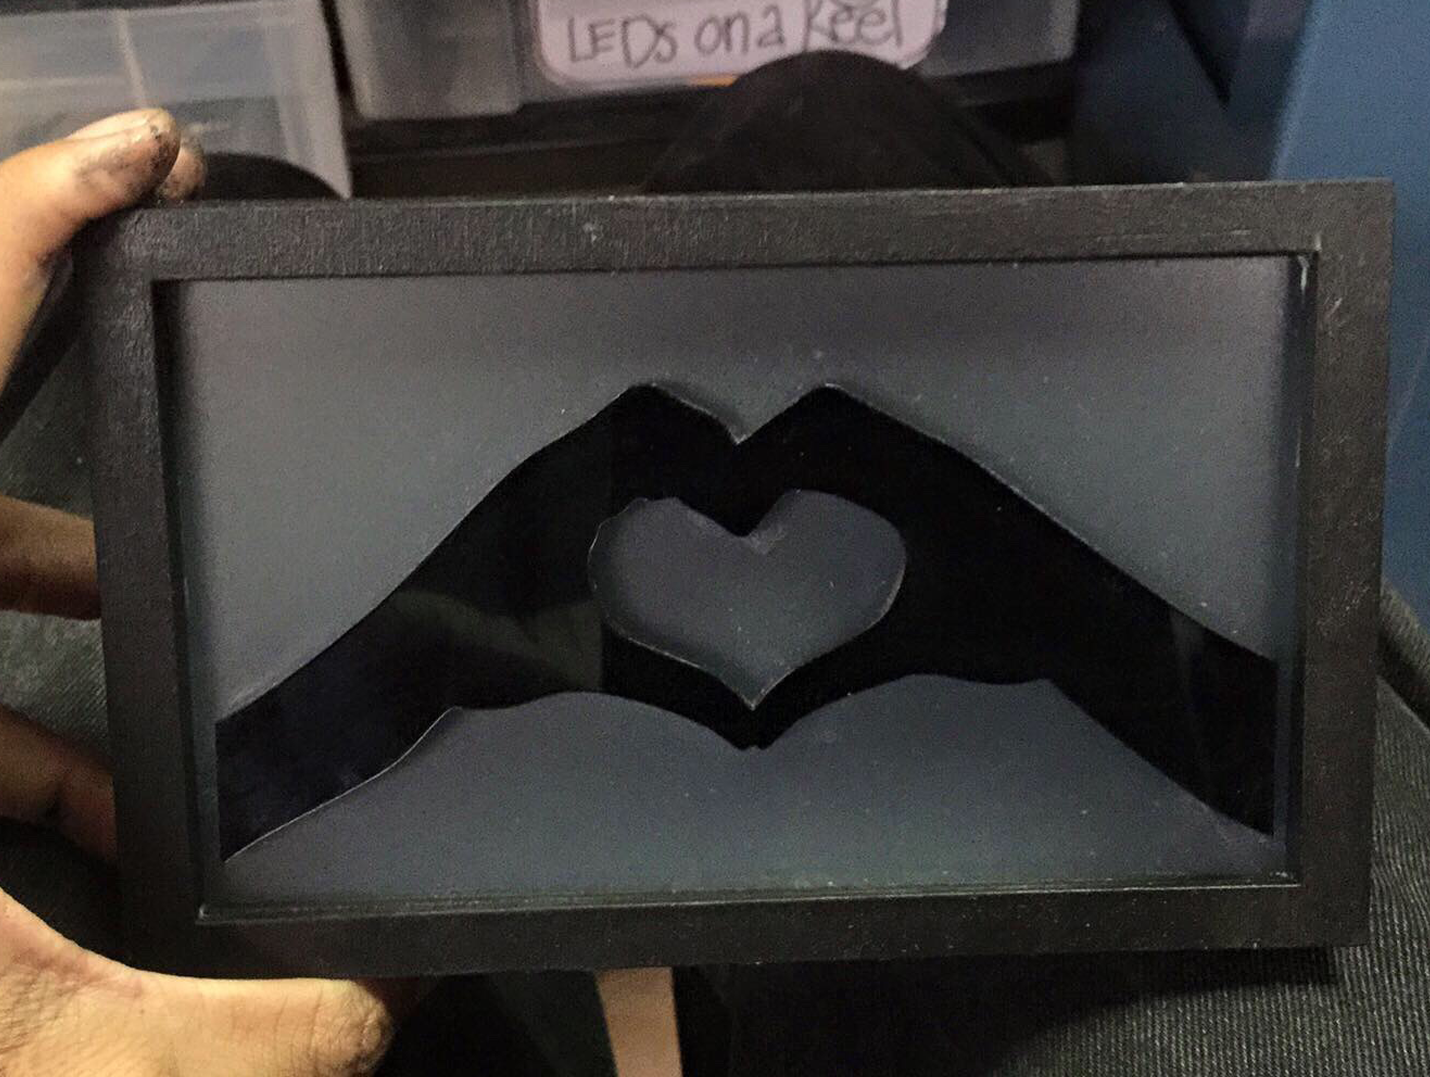 LEDs on a Reel